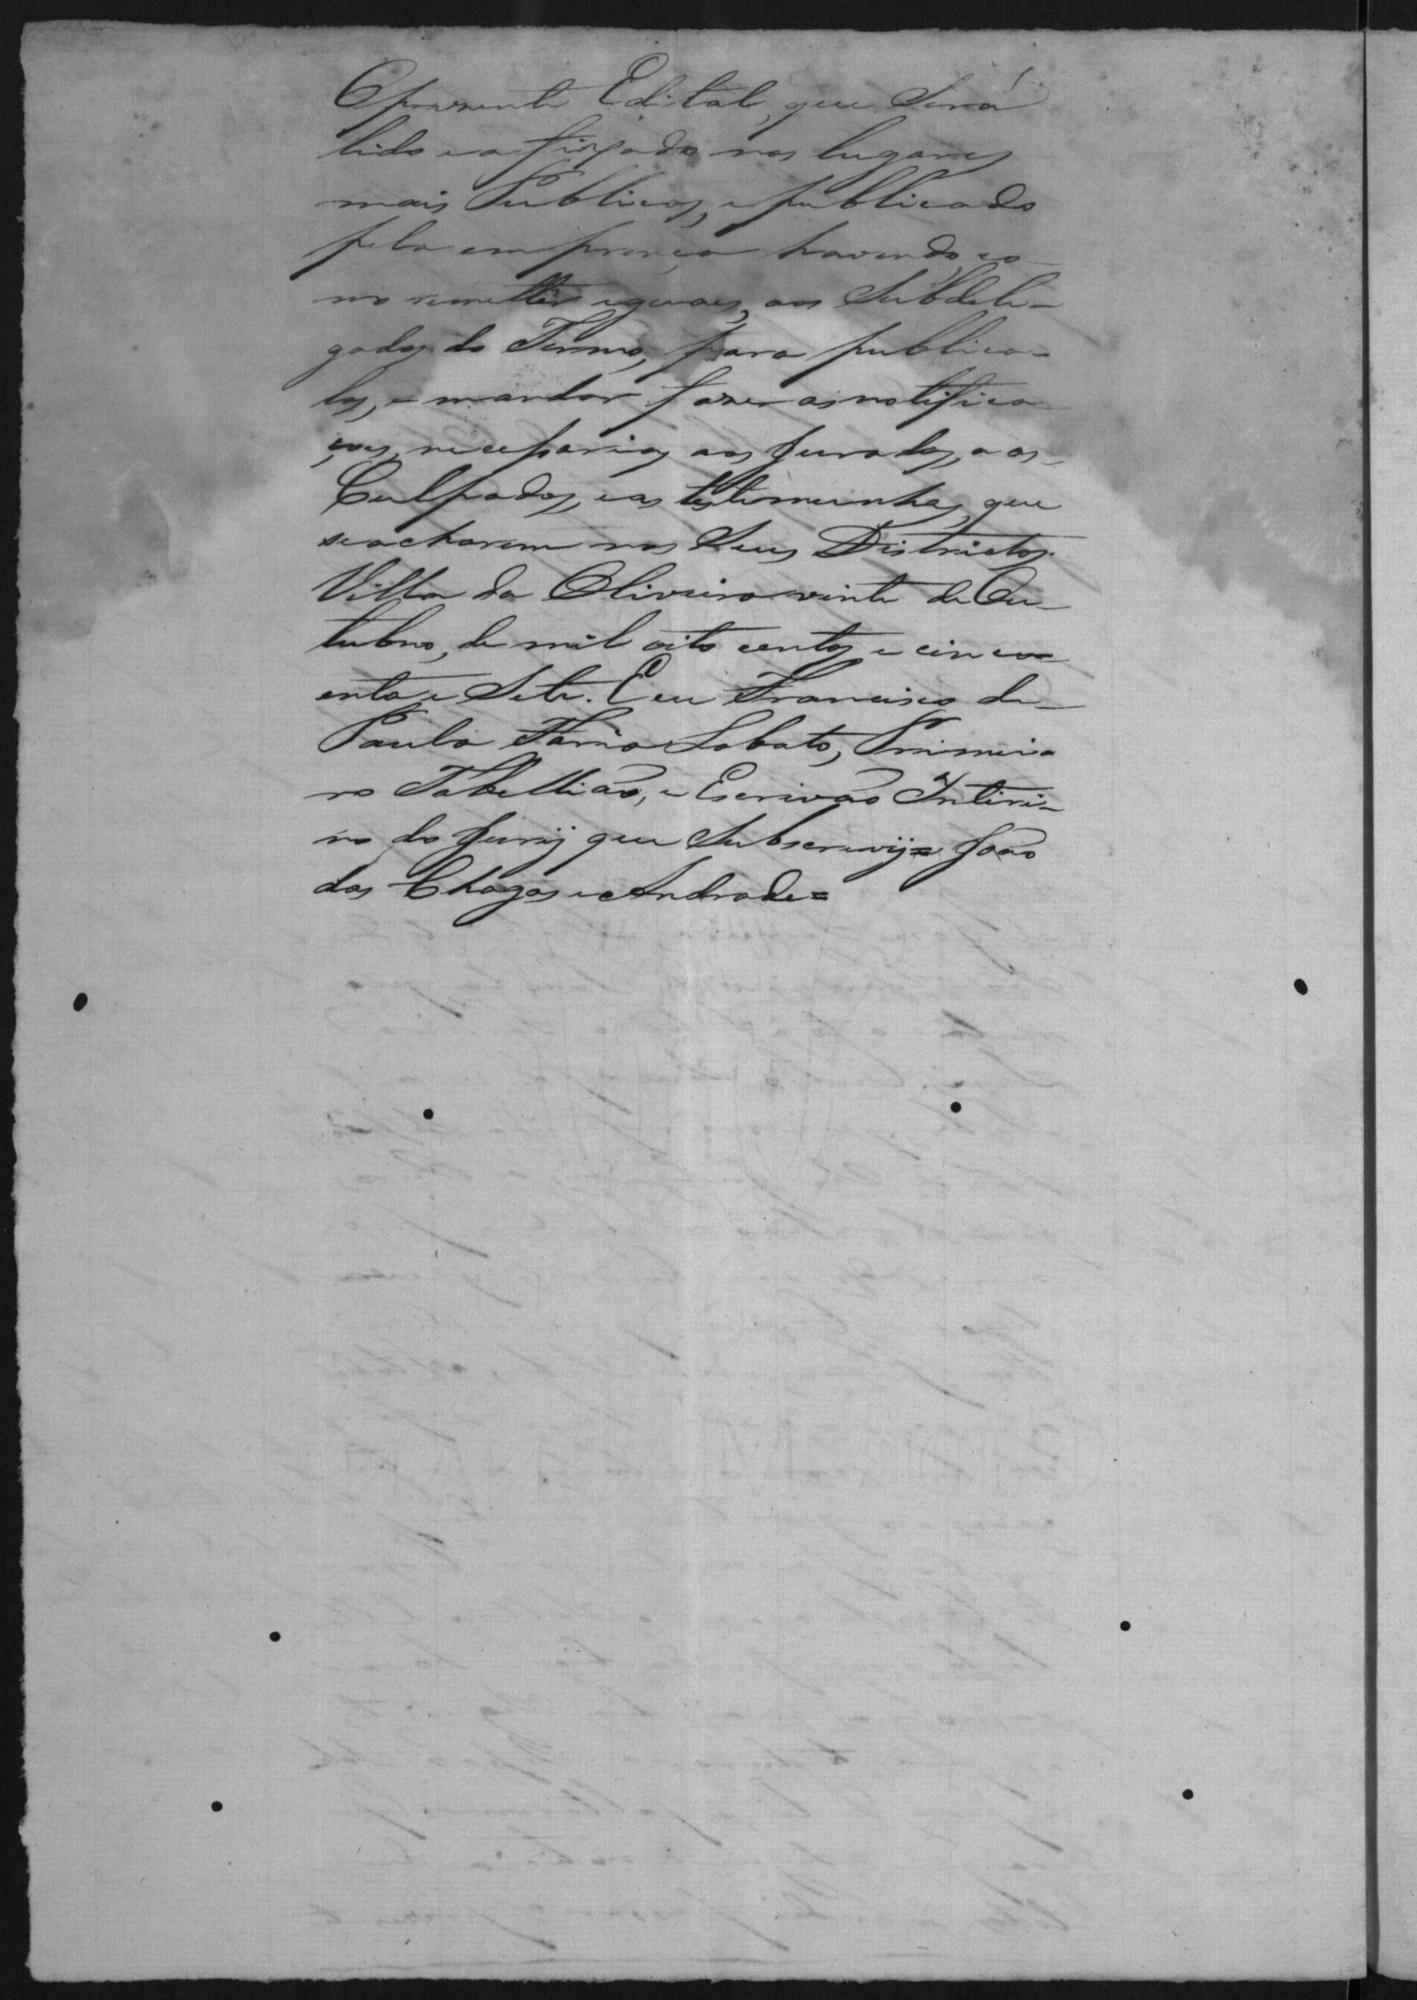 O presente Edital, que Será
lido e afixado nos lugares
mais Publicos, e publicado
pela emprença havendo, co-
mo remetter iguaes, aos Subdele-
gados do Termo, para publica-
los, e mandar fazer as notifica-
ções, necessarias aos Jurados, aos
Culpados, e as testemunhas, que
se acharem nos Seus Districtos.
Villa da Oliveira vinte de Ou-
tubro, de mil oito centos e cinco-
enta e Sete. E eu Francisco de
Paula Faria Lobato, Primei-
ro Tabellião, e Escrivão Interi-
no do Jury que Subscrevij= João
das Chagas e Andrade=